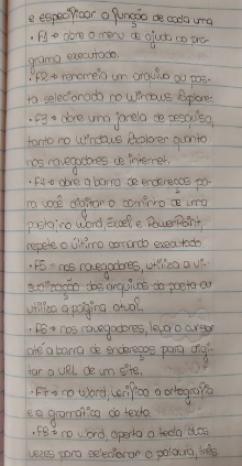 e especificar a função de cada uma
• F1 → abre o menu de ajuda do pro-
grama executado.
• F2 → renomeia um arquivo ou pas-
ta selecionado no Windows Explorer.
• F3 → abre uma janela de pesquisa,
tanto no Windows Explorer quanto
nos navegadores de internet.
• F4 → abre a barra de endereços pa-
ra você digitar o caminho de uma
pasta; no Word, Excel e PowerPoint,
repete o último comando executado
• F5 → nos navegadores, utiliza a vi-
sualização dos arquivos da pasta ou
utiliza a página atual.
• F6 → nos navegadores, leva o cursor
até a barra de endereços para digi-
tar a URL de um site.
• F7 → no Word, verifica a ortografia
e a gramática do texto.
• F8 → no Word, aperta a tecla duas
vezes para selecionar a palavra, três